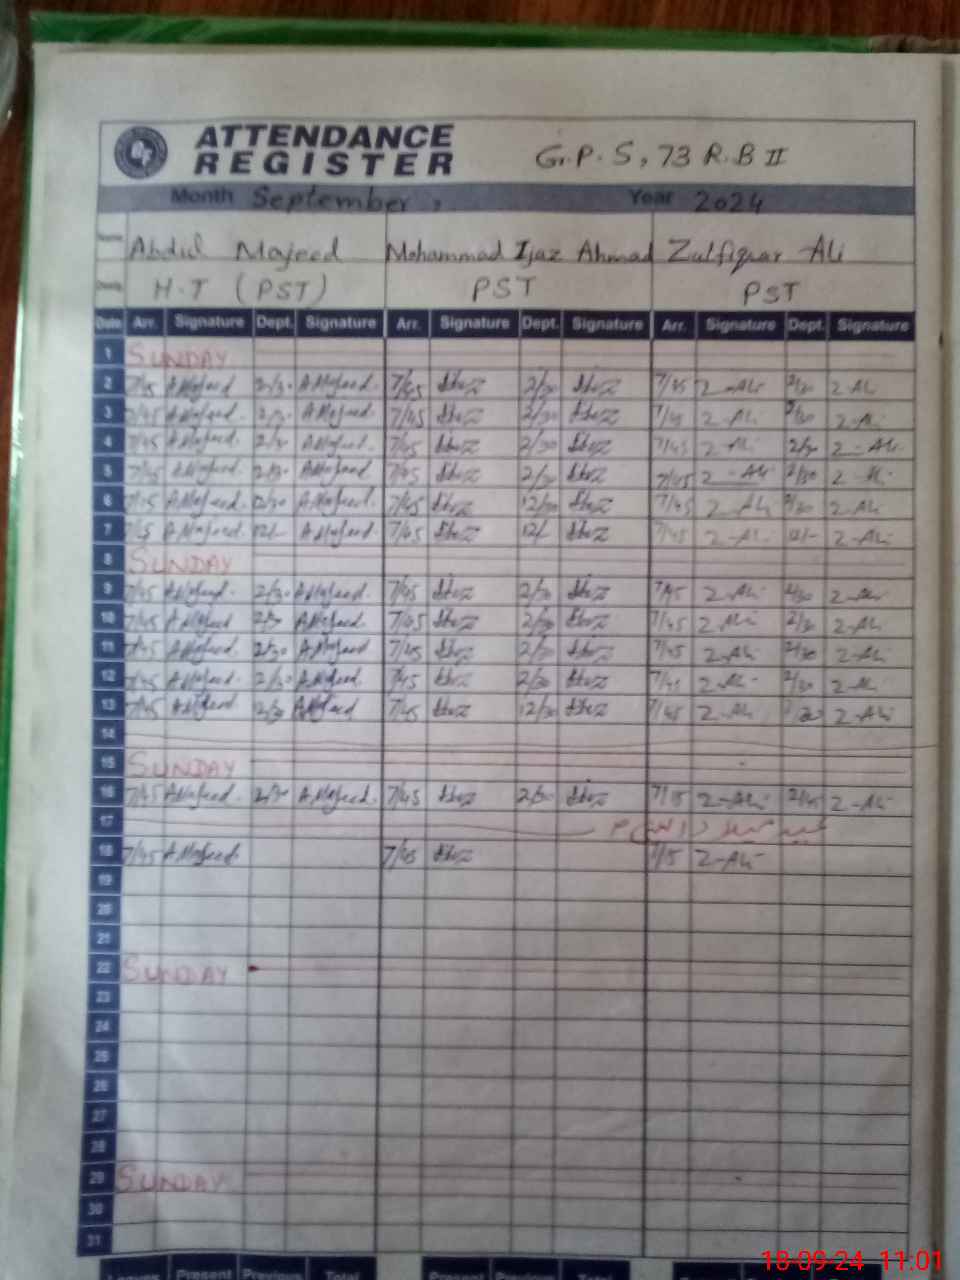 ATTENDANCE
REGISTER
G.P.S, 73 R.B II
Month September, Year 2024
Name Abdul Majeed Mohammad Ijaz Ahmad Zulfiqar Ali
H.T (PST) PST PST
Date Arr. Signature Dept. Signature Arr. Signature Dept. Signature Arr. Signature Dept. Signature
1 SUNDAY
2 7/45 A.Majeed 2/30 A.Majeed. 7/45 2/30 7/45 Z-Ali 2/30 Z-Ali
3 7/45 A.Majeed. 2/30 A.Majeed. 7/45 2/30 7/45 Z-Ali 2/30 Z-Ali
4 7/45 A.Majeed. 2/30 A.Majeed. 7/45 2/30 7/45 Z-Ali 2/30 Z-Ali
5 7/45 A.Majeed. 2/30 A.Majeed 7/45 2/30 7/45 Z-Ali 2/30 Z-Ali
6 7/45 A.Majeed. 12/30 A.Majeed. 7/45 12/30 7/45 Z-Ali Z-Ali
7 7/45 A.Majeed. 12/- A.Majeed. 7/45 12/- 7/45 Z-Ali 12/- Z-Ali
8 SUNDAY
9 7/45 A.Majeed. 2/30 A.Majeed. 7/45 2/30 7/45 Z-Ali 2/30 Z-Ali
10 7/45 A.Majeed 2/30 A.Majeed. 7/45 2/30 7/45 Z-Ali 2/30 Z-Ali
11 7/45 A.Majeed. 2/30 A.Majeed. 7/45 2/30 7/45 Z-Ali 2/30 Z-Ali
12 7/45 A.Majeed. 2/30 A.Majeed. 7/45 2/30 7/45 Z-Ali 2/30 Z-Ali
13 7/45 A.Majeed 12/30 A.Majeed 7/45 12/30 7/45 Z-Ali Z-Ali
14
15 SUNDAY
16 7/45 A.Majeed. 2/30 A.Majeed. 7/45 2/30 Z-Ali Z-Ali
17
18 7/45 A.Majeed. 7/45 Z-Ali
19
20
21
22 SUNDAY
23
24
25
26
27
28
29 SUNDAY
30
31
Leaves Present Previous Total Present Previous Total
18-09-24 11:01